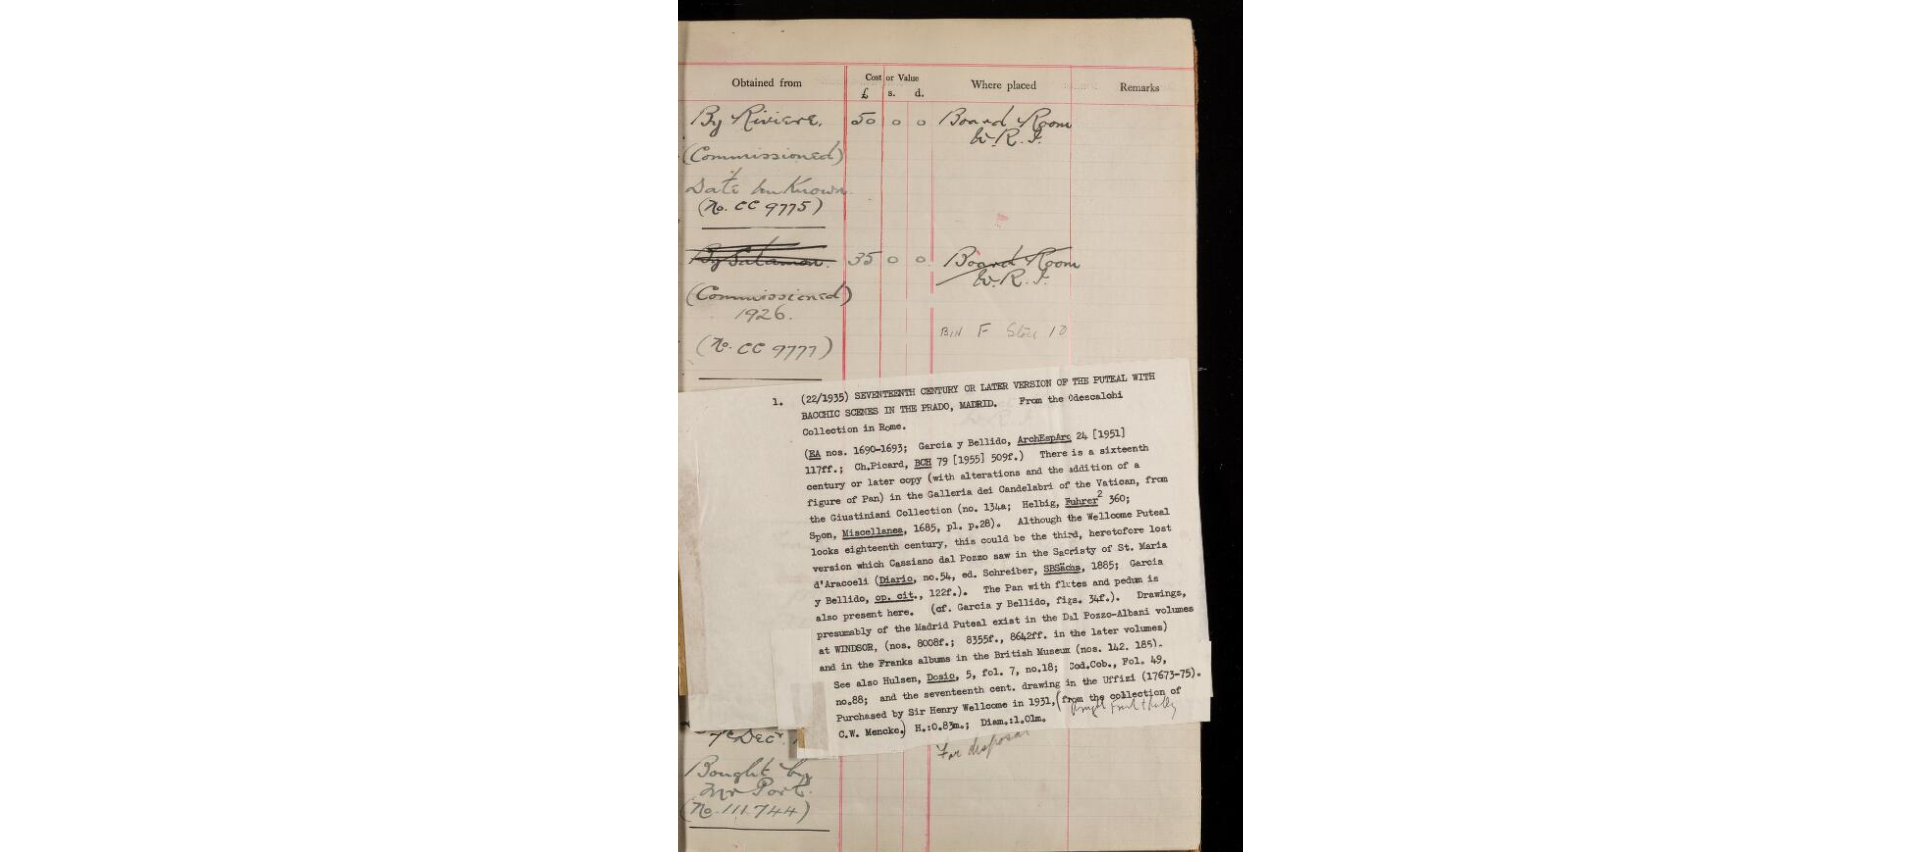 Obtained from Cost or Value Where placed Remarks
£ s. d.
By Riviere. 50 0 0 Board Room
W.R.I.
(Commissioned)
Date unknown.
(No. CC 9775)
By Salaman. 35 0 0. Board Room
W.R.I.
(Commissioned)
1926.
BIN F Store 10
(No. CC 9777)
1. (22/1935) SEVENTEENTH CENTURY OR LATER VERSION OF THE PUTEAL WITH
BACCHIC SCENES IN THE PRADO, MADRID. From the Odescalchi
Collection in Rome.
(EA nos. 1690-1693; Garcia y Bellido, ArchEspArq 24 [1951]
117ff.; Ch.Picard, BCH 79 [1955] 509f.) There is a sixteenth
century or later copy (with alterations and the addition of a
figure of Pan) in the Galleria dei Candelabri of the Vatican, from
the Giustiniani Collection (no. 134a; Helbig, Fuhrer2 360;
Spon, Miscellanea, 1685, pl. p.28). Although the Wellcome Puteal
looks eighteenth century, this could be the third, heretofore lost
version which Cassiano dal Pozzo saw in the Sacristy of St. Maria
d'Aracoeli (Diario, no.54, ed. Schreiber, SBSächs, 1885; Garcia
y Bellido, op. cit., 122f.). The Pan with flutes and pedum is
also present here. (cf. Garcia y Bellido, figs. 34f.). Drawings,
presumably of the Madrid Puteal exist in the Dal Pozzo-Albani volumes
at WINDSOR, (nos. 8008f.; 8355f., 8642ff. in the later volumes)
and in the Franks albums in the British Museum (nos. 142. 185).
See also Hulsen, Dosio, 5, fol. 7, no.18; Cod.Cob., Fol. 49,
no.88; and the seventeenth cent. drawing in the Uffizi (17673-75).
Purchased by Sir Henry Wellcome in 1931, (from the collection of
C.W. Mencke.) H.:0.83m.; Diam.:1.01m.
7th Dec.
For disposal
Bought by
Mr Port.
(No. 111.744)